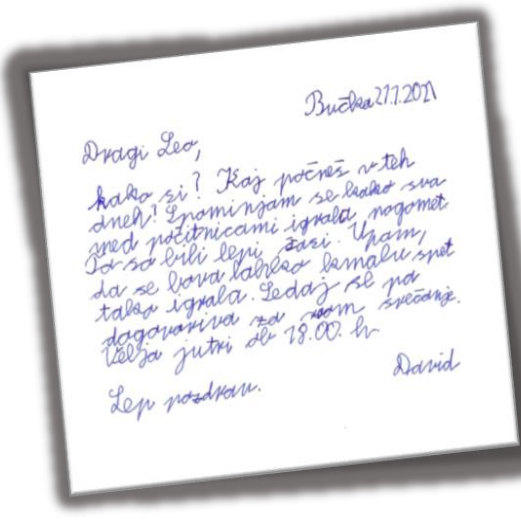 Bučka 27.7.2021
Dragi Leo,
kako si? Kaj počneš v teh
dneh? Spominjam se kako sva
med počitnicami igrala nogomet
To so bili lepi časi. Upam,
da se bova lahko kmalu spet
tako igrala. Sedaj se pa
dogovoriva za srečanje.
Velja jutri ob 18.00. h
Lep pozdrav.
David